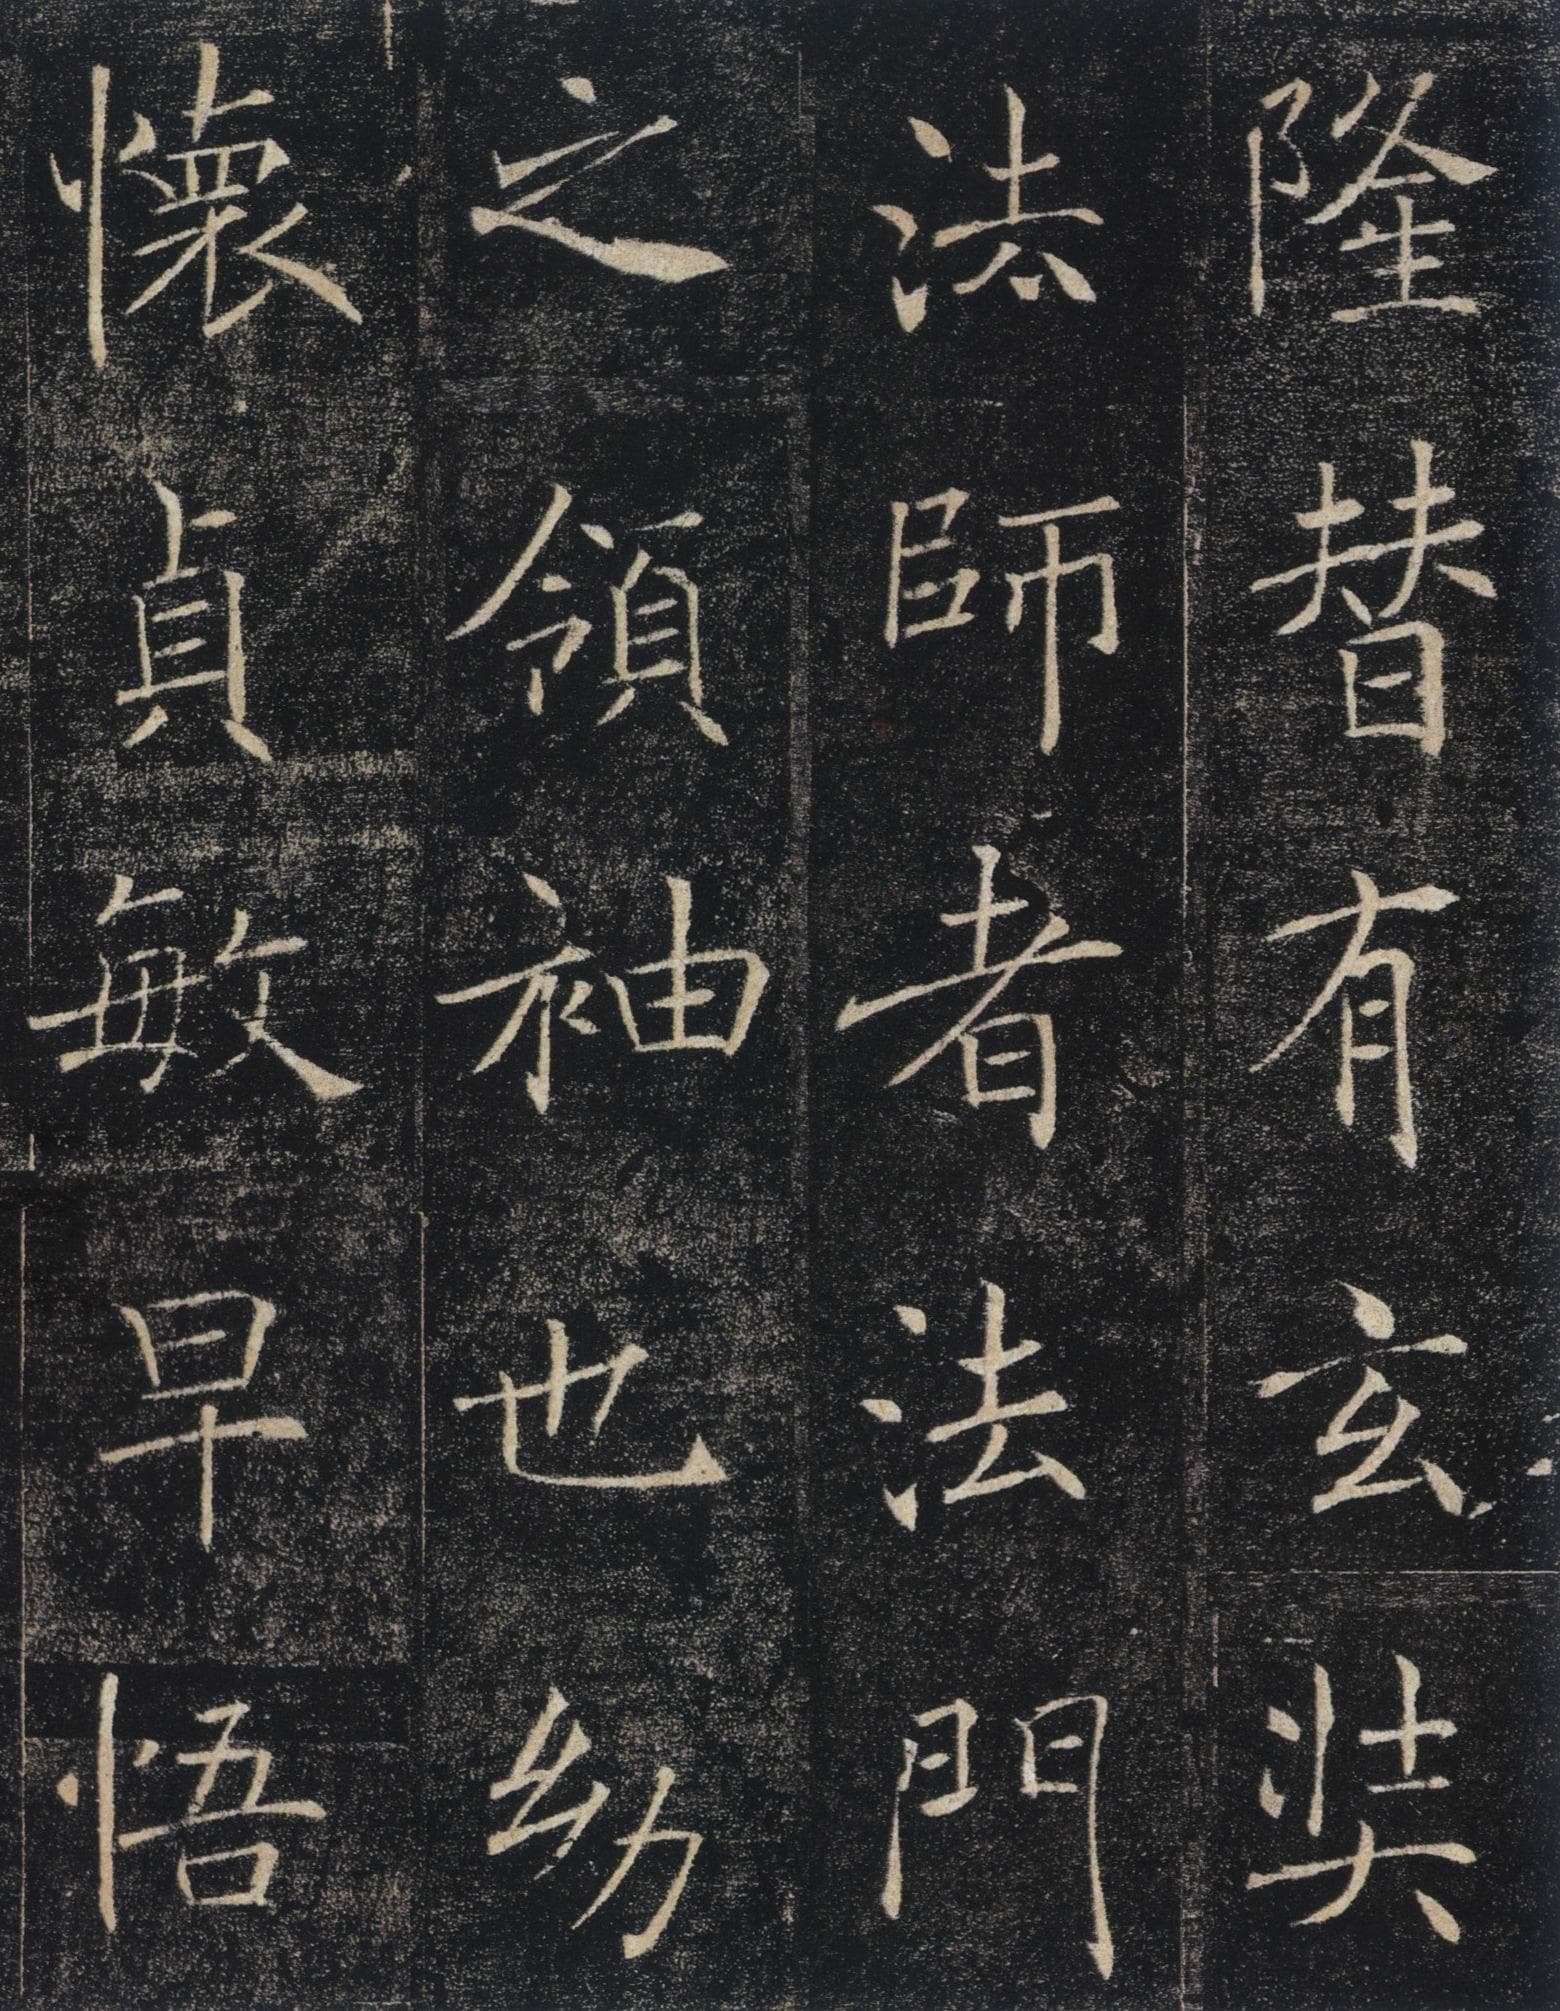 隆替有玄奘
法師者法門
之領袖也幼
懷貞敏早悟